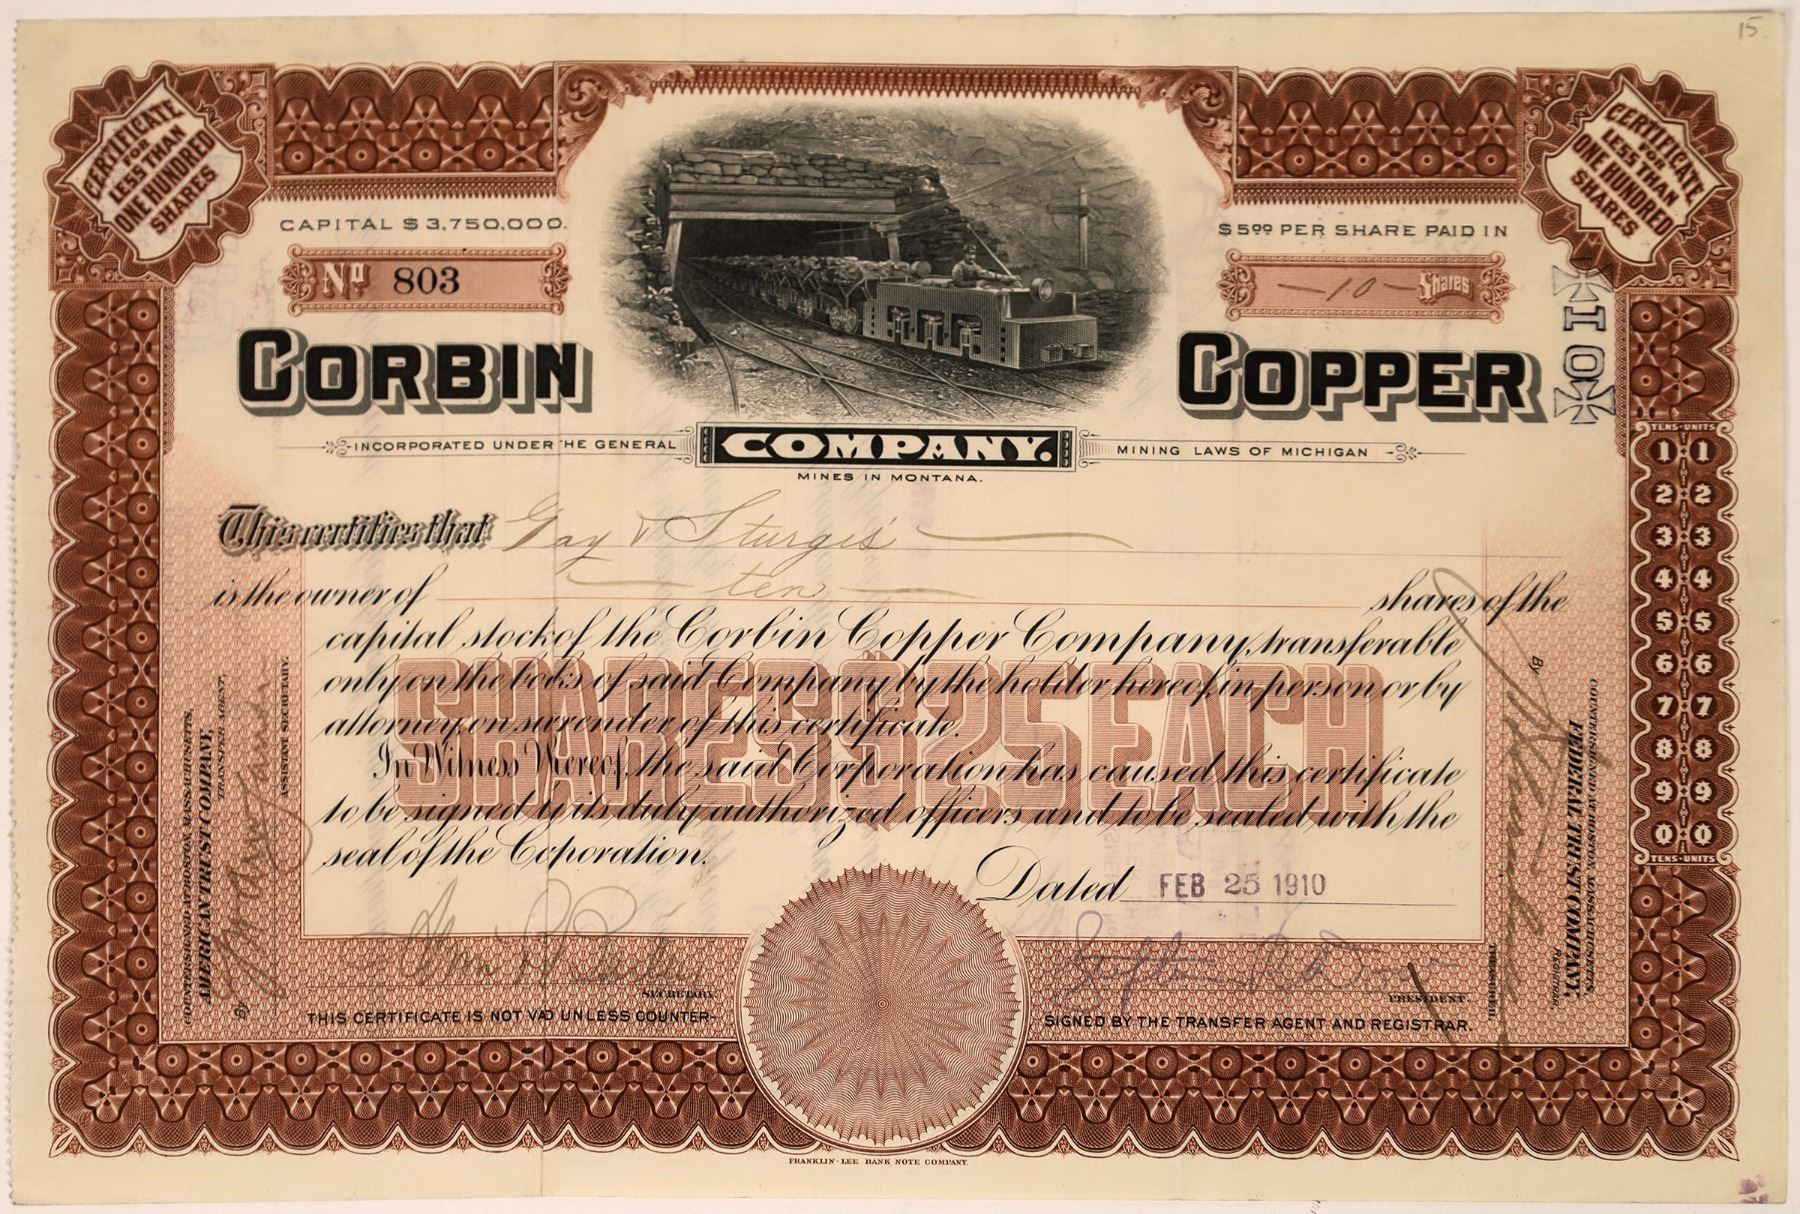 15.
CERTIFICATE
FOR
LESS THAN
ONE HUNDRED
SHARES
CERTIFICATE
FOR
LESS THAN
ONE HUNDRED
SHARES
CAPITAL $3,750,000.
$500 PER SHARE PAID IN
No 803
—10— Shares
10
CORBIN COPPER
COMPANY.
INCORPORATED UNDER THE GENERAL
MINING LAWS OF MICHIGAN
MINES IN MONTANA.
This certifies that Gay & Sturgis
is the owner of ten shares of the
capital stock of the Corbin Copper Company, transferable
only on the books of said Company by the holder hereof, in person or by
attorney, on surrender of this certificate.
In Witness Whereof, the said Corporation has caused this certificate
to be signed by its duly authorized officers and to be sealed with the
seal of the Coporation.
SHARES $25 EACH
Dated FEB 25 1910
SECRETARY.
PRESIDENT.
THIS CERTIFICATE IS NOT VALID UNLESS COUNTER-
SIGNED BY THE TRANSFER AGENT AND REGISTRAR.
COUNTERSIGNED AT BOSTON, MASSACHUSETTS,
AMERICAN TRUST COMPANY,
TRANSFER AGENT,
By
ASSISTANT SECRETARY.
COUNTERSIGNED AT BOSTON, MASSACHUSETTS,
FEDERAL TRUST COMPANY,
REGISTRAR,
By
TENS-UNITS
1 1
2 2
3 3
4 4
5 5
6 6
7 7
8 8
9 9
0 0
TENS-UNITS
FRANKLIN-LEE BANK NOTE COMPANY.